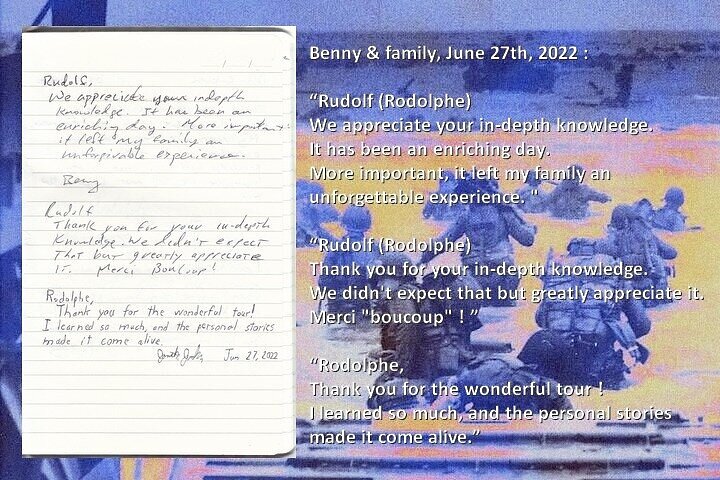 Rudolf,
We appreciate your indepth
knowledge. It has been an
enriching day. More important,
it left my family an
unforgivable experience.
Benny
Rudolf
Thank you for your in-depth
knowledge. We didn't expect
that but greatly appreciate
it. Merci Boucoup!
Rodolphe,
Thank you for the wonderful tour!
I learned so much, and the personal stories
made it come alive.
Jun 27, 2022
Benny & family, June 27th, 2022 :
“Rudolf (Rodolphe)
We appreciate your in-depth knowledge.
It has been an enriching day.
More important, it left my family an
unforgettable experience. "
“Rudolf (Rodolphe)
Thank you for your in-depth knowledge.
We didn't expect that but greatly appreciate it.
Merci "boucoup" ! ”
“Rodolphe,
Thank you for the wonderful tour !
I learned so much, and the personal stories
made it come alive.”